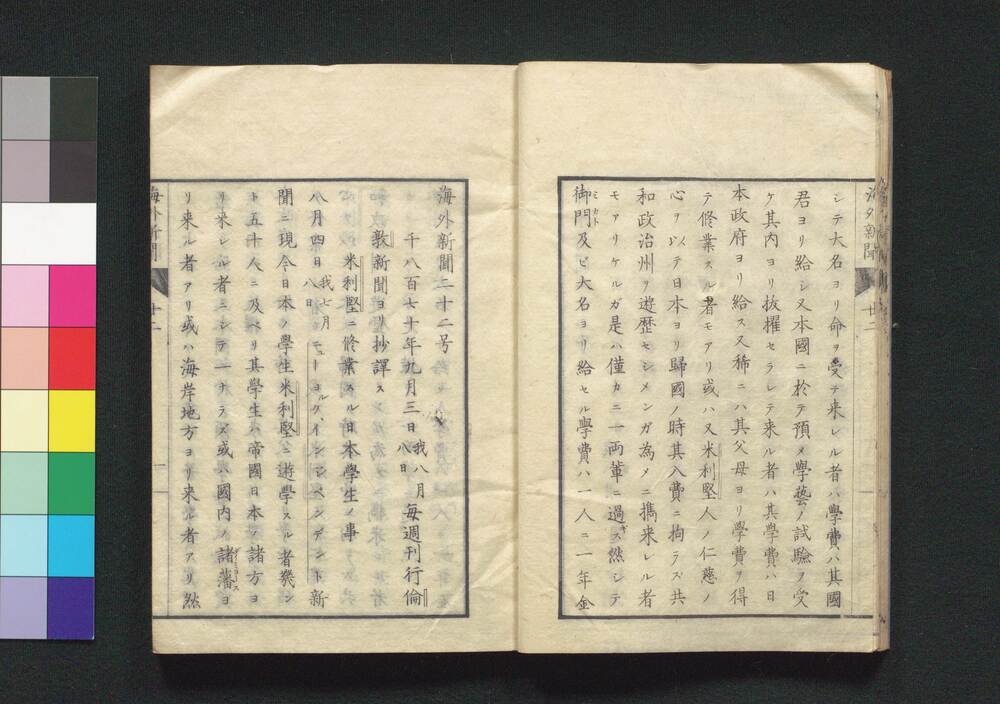 海外新聞
廿二
シテ大名ヨリ命ヲ受テ来レル者ハ學費ハ其國
君ヨリ給シ又本國ニ於テ預メ學藝ノ試驗ヲ受
ケ其内ヨリ抜擢セラレテ来ル者ハ其學費ハ日
本政府ヨリ給ス又稀ニハ其父母ヨリ學費ヲ得
テ修業スル者モアリ或ハ又米利堅人ノ仁慈ノ
心ヲ以テ日本ヨリ歸國ノ時其入費ニ拘ラズ共
和政治州ヲ遊歴セシメンガ為メニ携来レル者
モアリケルガ是ハ僅カニ一両輩ニ過ギス然シテ
御門及ビ大名ヨリ給セル學費ハ一人ニ一年金
海外新聞二十二号
千八百七十年九月三日我八月八日毎週刊行倫
敦新聞ヨリ抄譯ス
米利堅ニ修業スル日本學生ノ事
八月四日我七月八日ニューヨルク、インジペンデント新
聞ニ現今日本ノ學生米利堅ニ遊學スル者幾ン
ト五十人ニ及ベリ其學生ハ帝國日本ノ諸方ヨ
リ来レル者ニシテ一ナラズ或ハ國内ノ諸藩ヨ
リ来ル者アリ或ハ海岸地方ヨリ来ル者アリ然
海外新聞
廿二